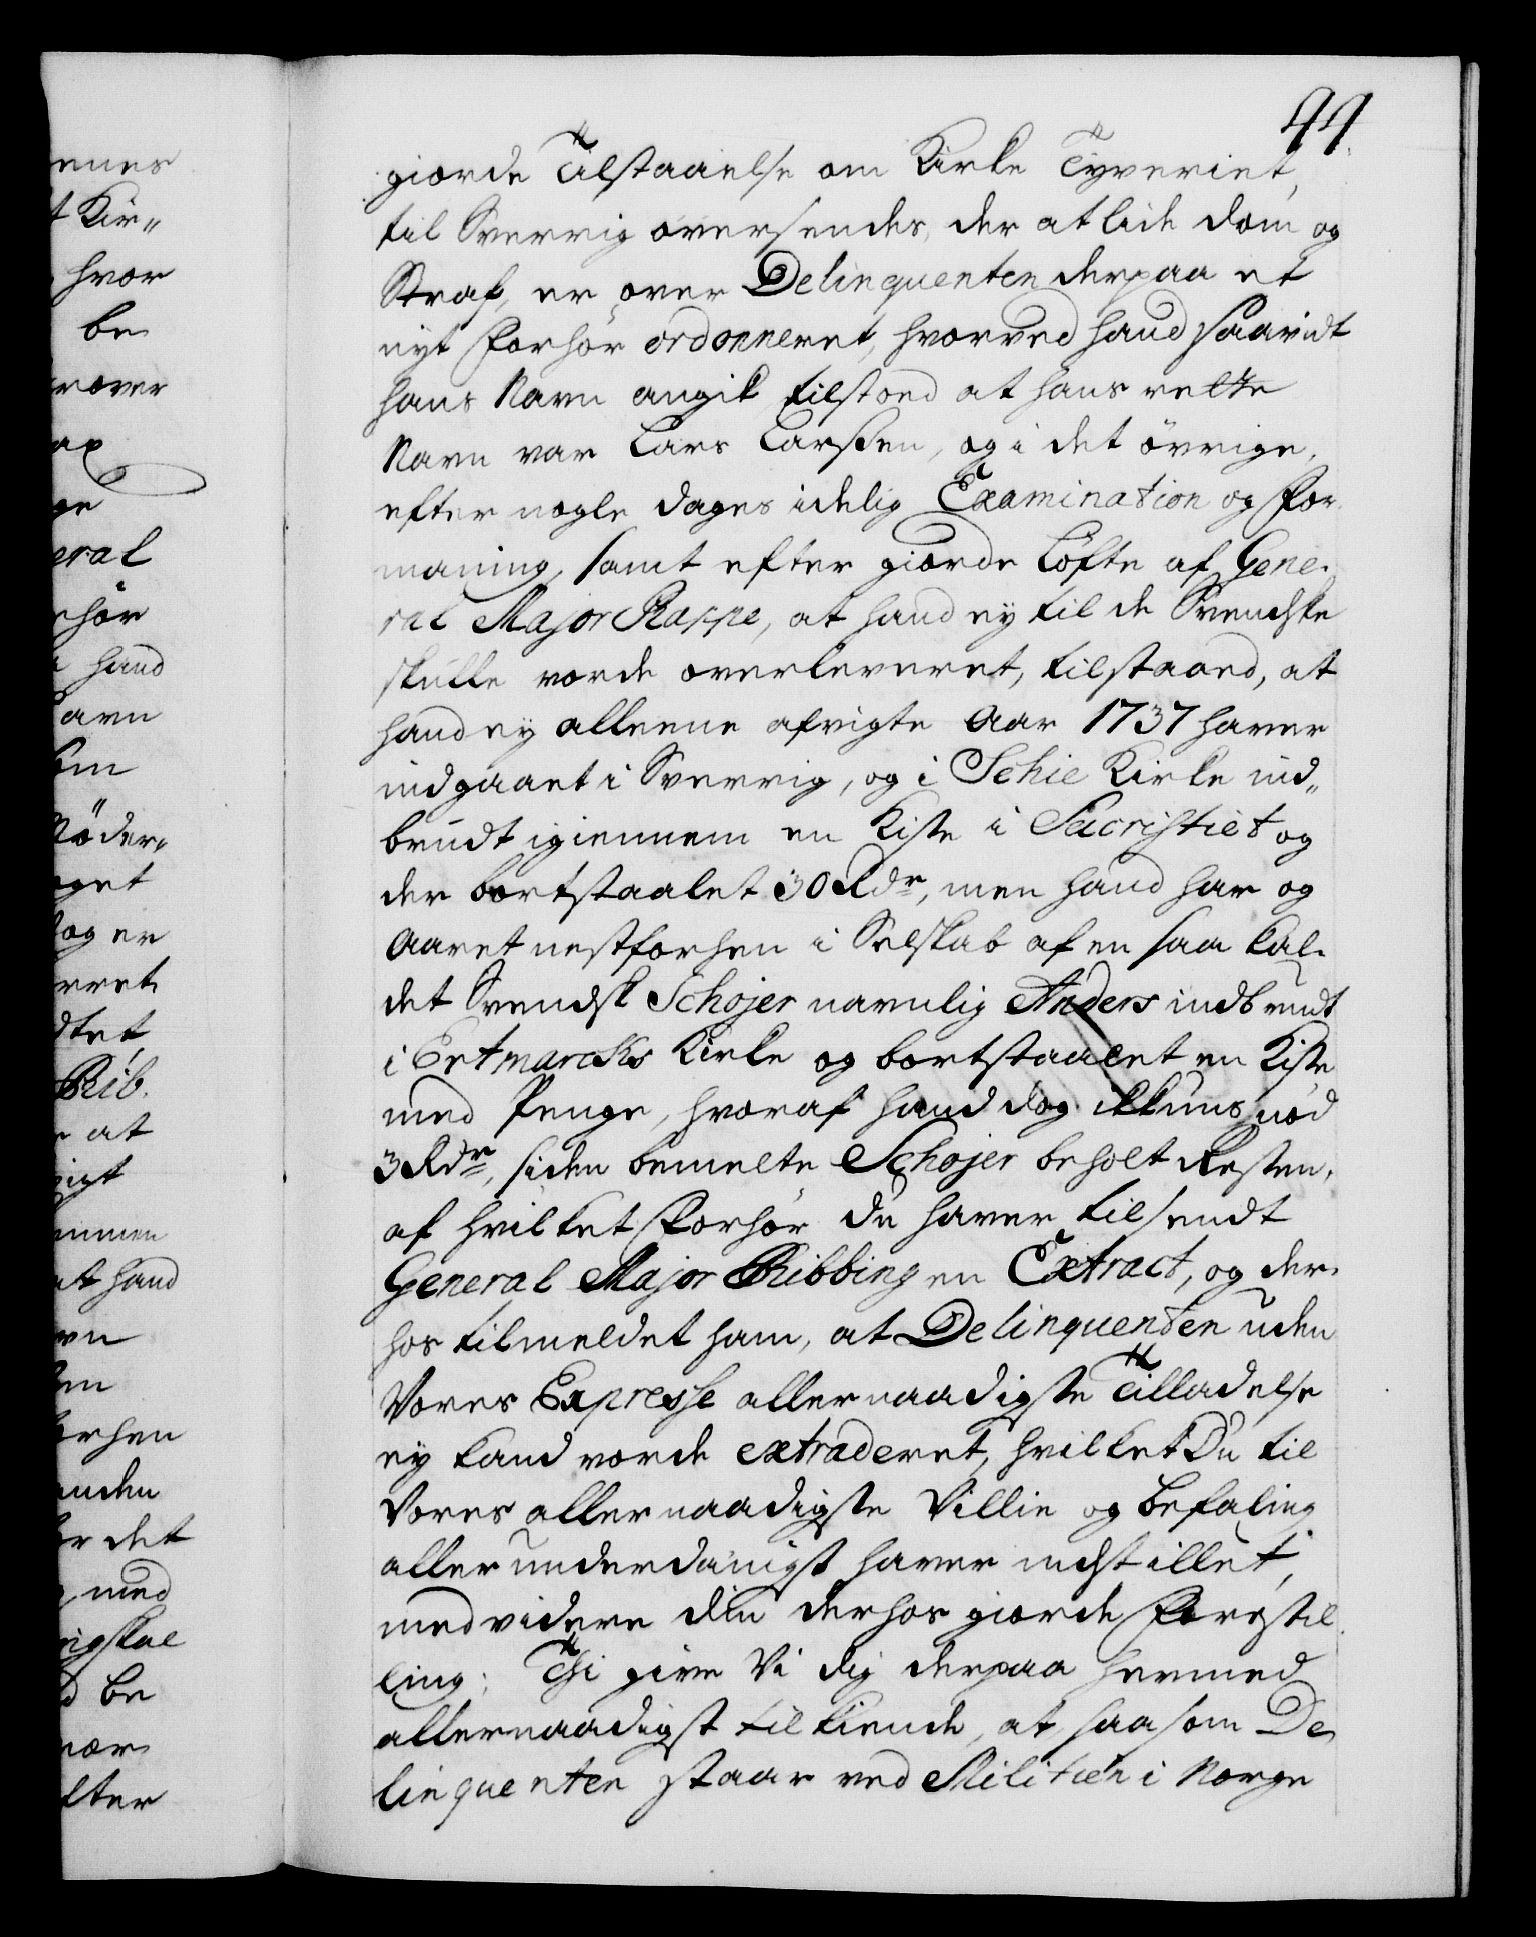 44.
giorde Tilstaaelse om Kirke Tyveriet,
til Sverrig oversendes, der at lide dom og
Straf, er over Delinquenten derpaa et
nyt Forhør ordonneret, hvorved hand saavidt
hans Navn angik tilstoed at hans rette
Navn var Lars Larssen, og i det öfrige,
efter nogle dages idelig Examination og For-
maning, samt efter giorde Løfte af Gene-
ral Major Rappe, at hand ey til de Svendske
skulle vorde overleveret, tilstaaed, at
hand ey alleene afvigte Aar 1737 haver
indgaaet i Sverrig, og i Schie Kirke ind„
brudt igiennem en Kiste i Sacristiet og
der bortstaalet 30 Rdr, men hand har og
Aaret nestforhen i Selskab af en saa kal-
det Svendsk Schojer navnlig Anders indbrudt
i Eetmarcks Kirke og bortstaalet en Kiste
med Penge, hvoraf hand dog ikkuns nød
3 Rdr, siden bemelte Schojer beholt Resten,
af hvilket Forhør du haver tilsendt
General Major Ribbing en Extract, og der-
hos tilmeldet ham, at Delinquenten uden
Vores Expresse allernaadigste Tilladelse
ey kand vorde extraderet, hvilket Du til
Vores allernaadigste Villie og Befaling
allerunderdanigst haver indstillet,
med videre din derhos giorde Forestil-
ling: Thi give Vi dig derpaa hermed
allernaadigst tilkiende, at saasom De
linquenten staar ved Militien i Norge
enes
t Kir„
hvor
be
rover
ge
eral
rhör
hand
avn
Röder„
oget
og er
rret
dtet
Rib.
at
ommen
at hand
vn
orhen
anden
or det
med
be
efter